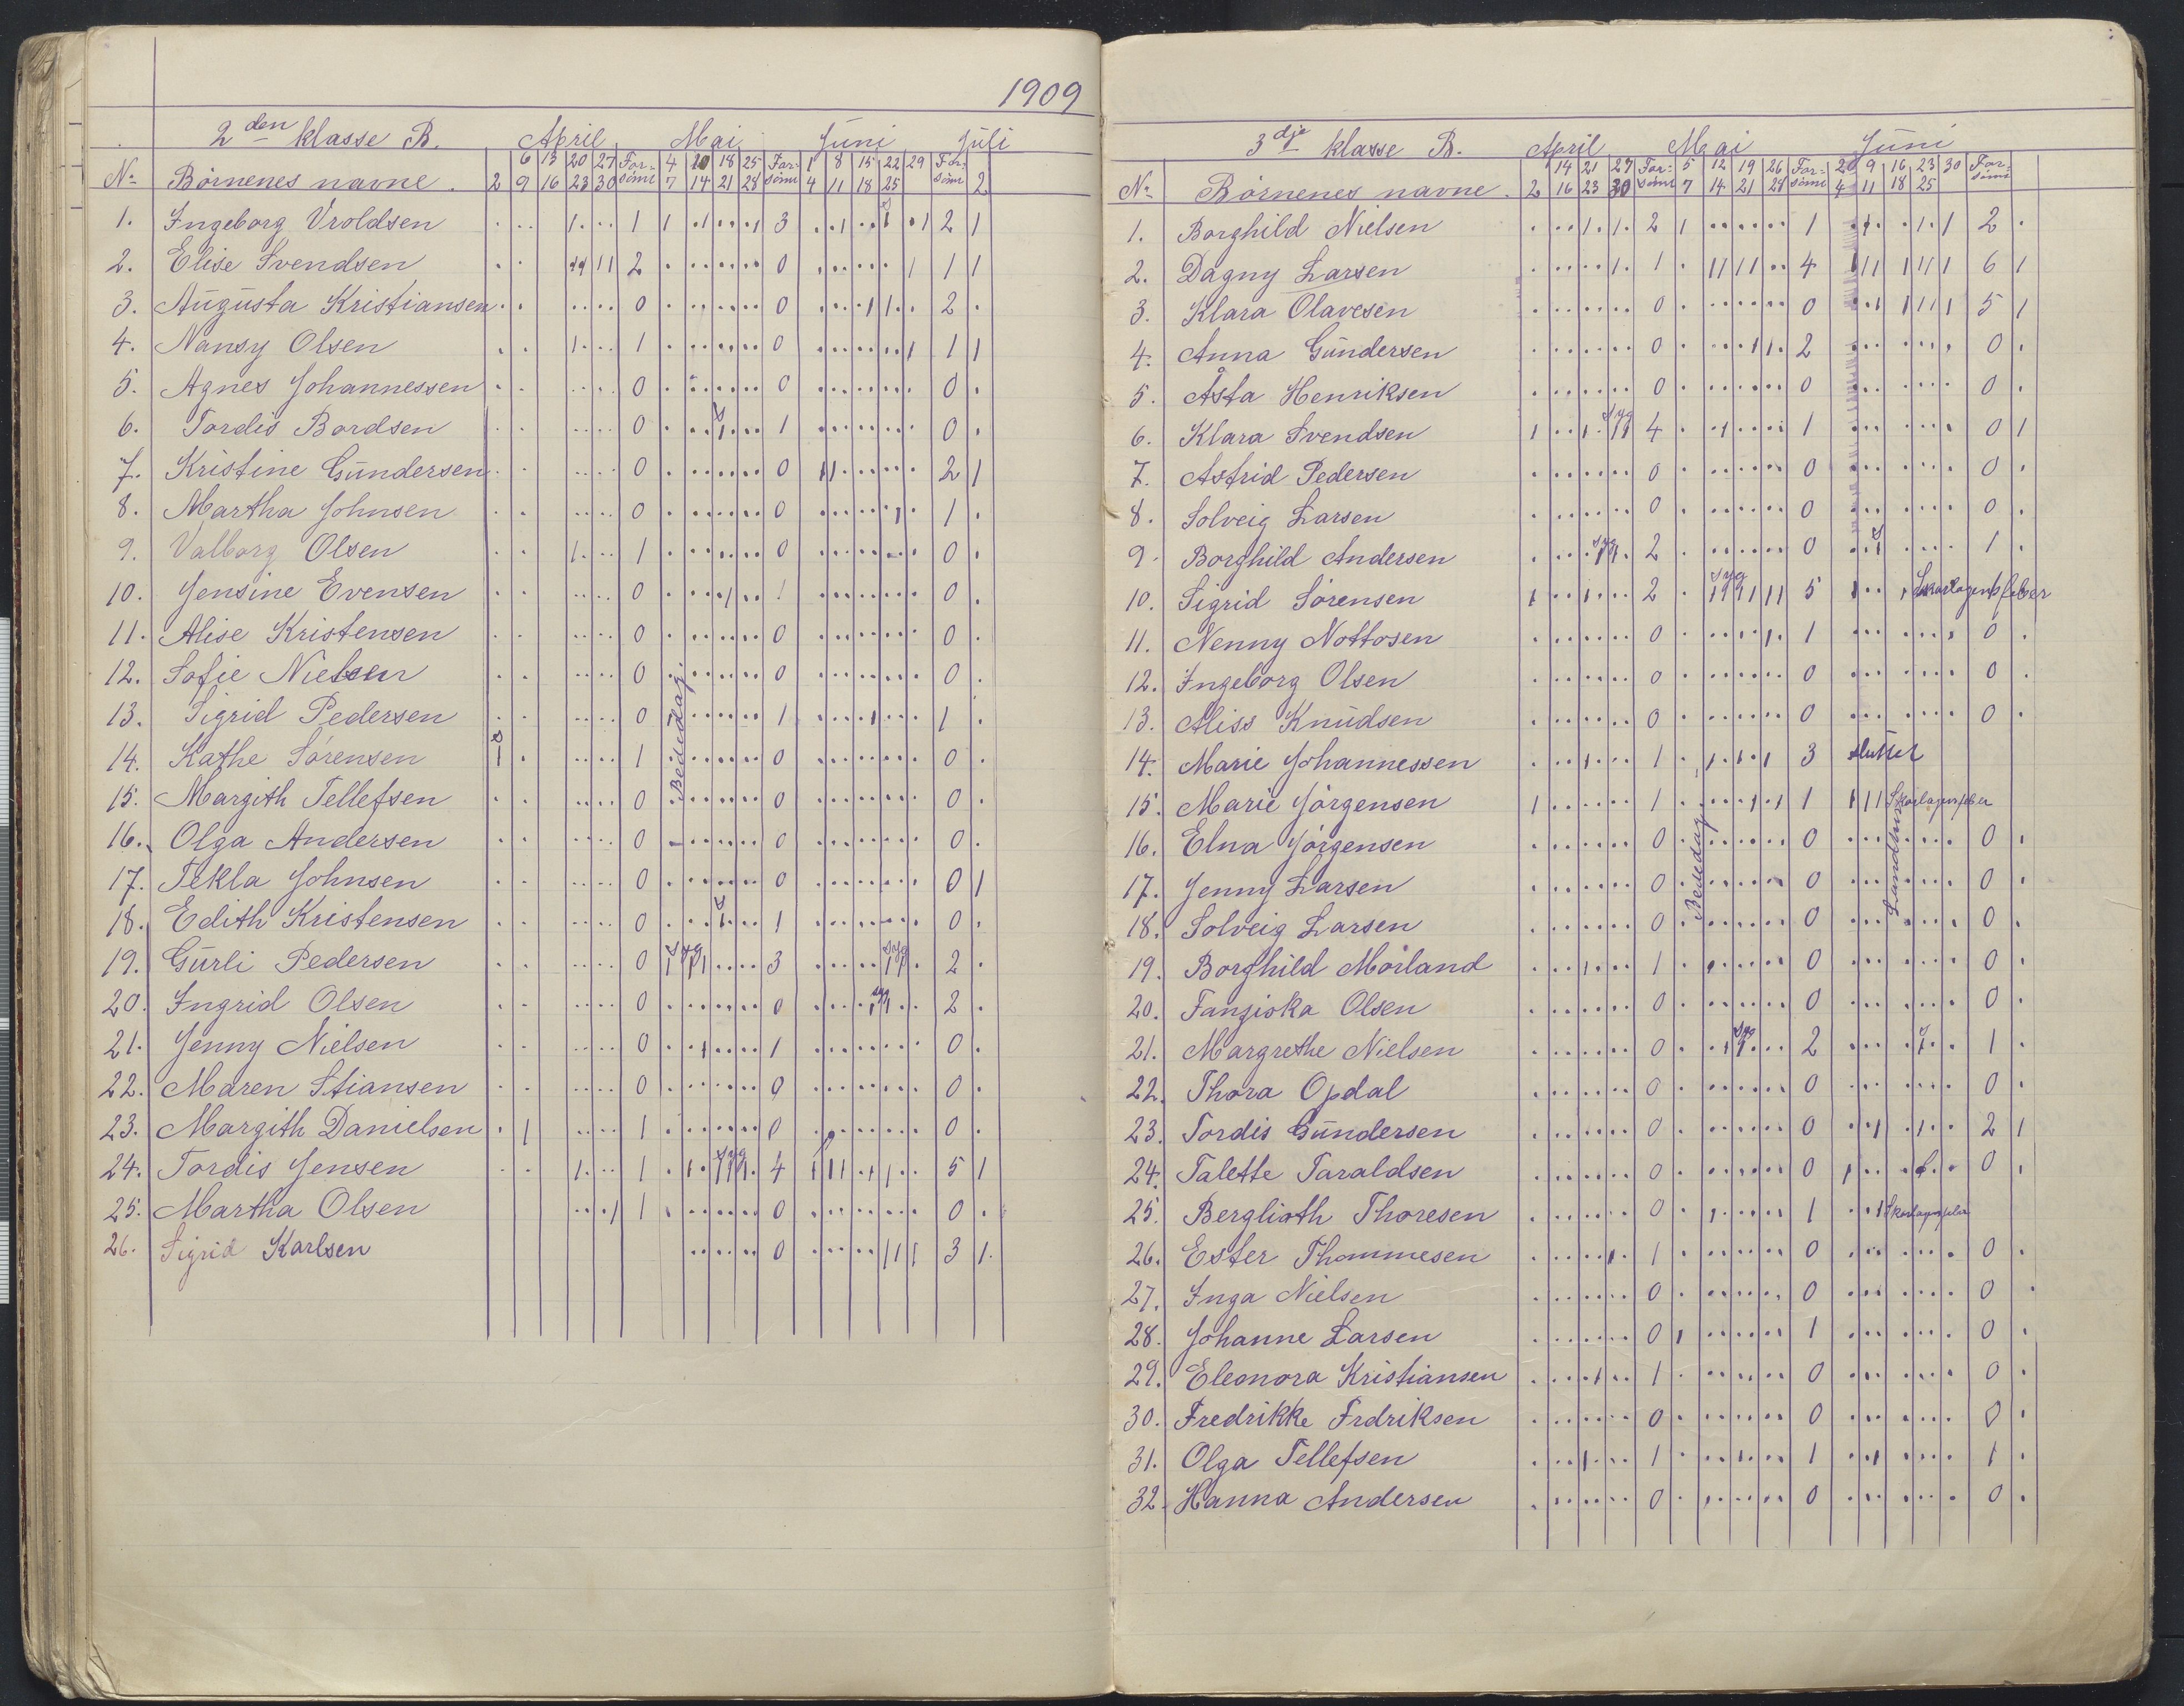 1909
2den klasse B. April Mai Juni Juli
6 13 20 27 For- 4 11 18 25 For- 1 8 15 22 29 For-
No Börnenes navne. 2 9 16 23 30 sömt 7 14 21 28 sömt 4 11 18 25 sömt 2
1. Ingeborg Vroldsen 1 3 2 1
2. Elise Svendsen 2 0 1 1
3. Augusta Kristiansen 0 0 2
4. Nansy Olsen 1 0 1 1
5. Agnes Johannessen 0 0 0
6. Tordis Bordsen 0 s 1 0
7. Kristine Gundersen 0 0 2 1
8. Martha Johnsen 0 0 1
9. Valborg Olsen 1 0 0
10. Jensine Evensen 0 1 0
11. Alise Kristensen 0 0 0
12. Sofie Nielsen 0 0 0
13. Sigrid Pedersen 0 1 1
14. Kathe Sörensen s 1 0 0
Bededag
15. Margith Tellefsen 0 0 0
16. Olga Andersen 0 0 0
17. Tekla Johnsen 0 0 0 1
18. Edith Kristensen 0 s 1 0
19. Gurli Pedersen 0 syg 3 syg 2
20. Ingrid Olsen 0 0 syg 2
21. Jenny Nielsen 0 1 0
22. Maren Stiansen 0 0 0
23. Margith Danielsen 1 0 0
24. Tordis Jensen 1 syg 4 5 1
25. Martha Olsen 1 0 0
26. Sigrid Karlsen 0 3 1
3dje klasse B. April Mai Juni
14 21 27 For- 5 12 19 26 For- 2 9 16 23 30 For-
No Börnenes navne. 2 16 23 30 sömt 7 14 21 28 sömt 4 11 18 25 sömt
1. Borghild Nielsen 2 1 2
2. Dagny Larsen 1 4 6 1
3. Klara Olavesen 0 0 5 1
4. Anna Gundersen 0 2 0
5. Åsta Henriksen 0 0 0
6. Klara Svendsen syg 4 1 0 1
7. Astrid Pedersen 0 0 0
8. Solveig Larsen 0 0 0
9. Borghild Andersen syg 2 0 s 1
10. Sigrid Sörensen 2 syg 5 Skarlagensfeber
11. Nenny Nottosen 0 1 0
12. Ingeborg Olsen 0 0 0
13. Aliss Knudsen 0 0 0
14. Marie Johannessen 1 3 sluttet
15. Marie Jörgensen 1 1 Skarlagensfeber
Bededag
16. Elna Jörgensen 0 0 0
17. Jenny Larsen 0 0 0
18. Solveig Larsen 0 0 0
19. Borghild Mörland 1 0 0
20. Fanziska Olsen 0 0 0
21. Margrethe Nielsen 0 syg 2 s 1
22. Thora Opdal 0 0 0
23. Tordis Gundersen 0 0 2 1
24. Talette Taraldsen 0 0 0
25. Berglioth Thoresen 0 1 Skarlagensfeber
26. Ester Thommesen 1 0 0
27. Inga Nielsen 0 0 0
28. Johanne Larsen 0 1 0
29. Eleonora Kristiansen 1 0 0
30. Fredrikke Frdriksen 0 0 0
31. Olga Tellefsen 1 1 1
32. Hanna Andersen 0 0 0